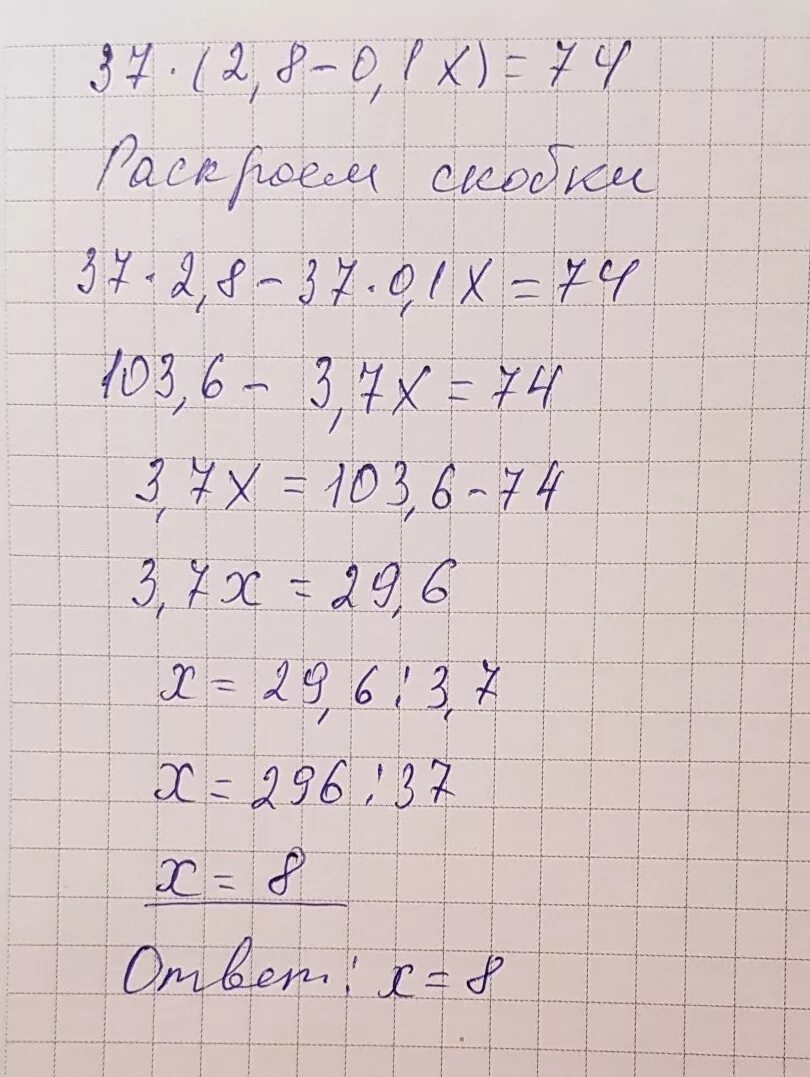 37·(2,8-0,1x)=74
Раскроем скобки
37·2,8-37·0,1x=74
103,6-3,7x=74
3,7x=103,6-74
3,7x=29,6
x=29,6:3,7
x=296:37
x=8
Ответ: x=8